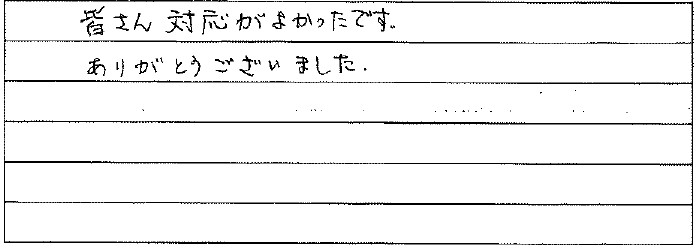 皆さん 対応がよかったです。
ありがとうございました.